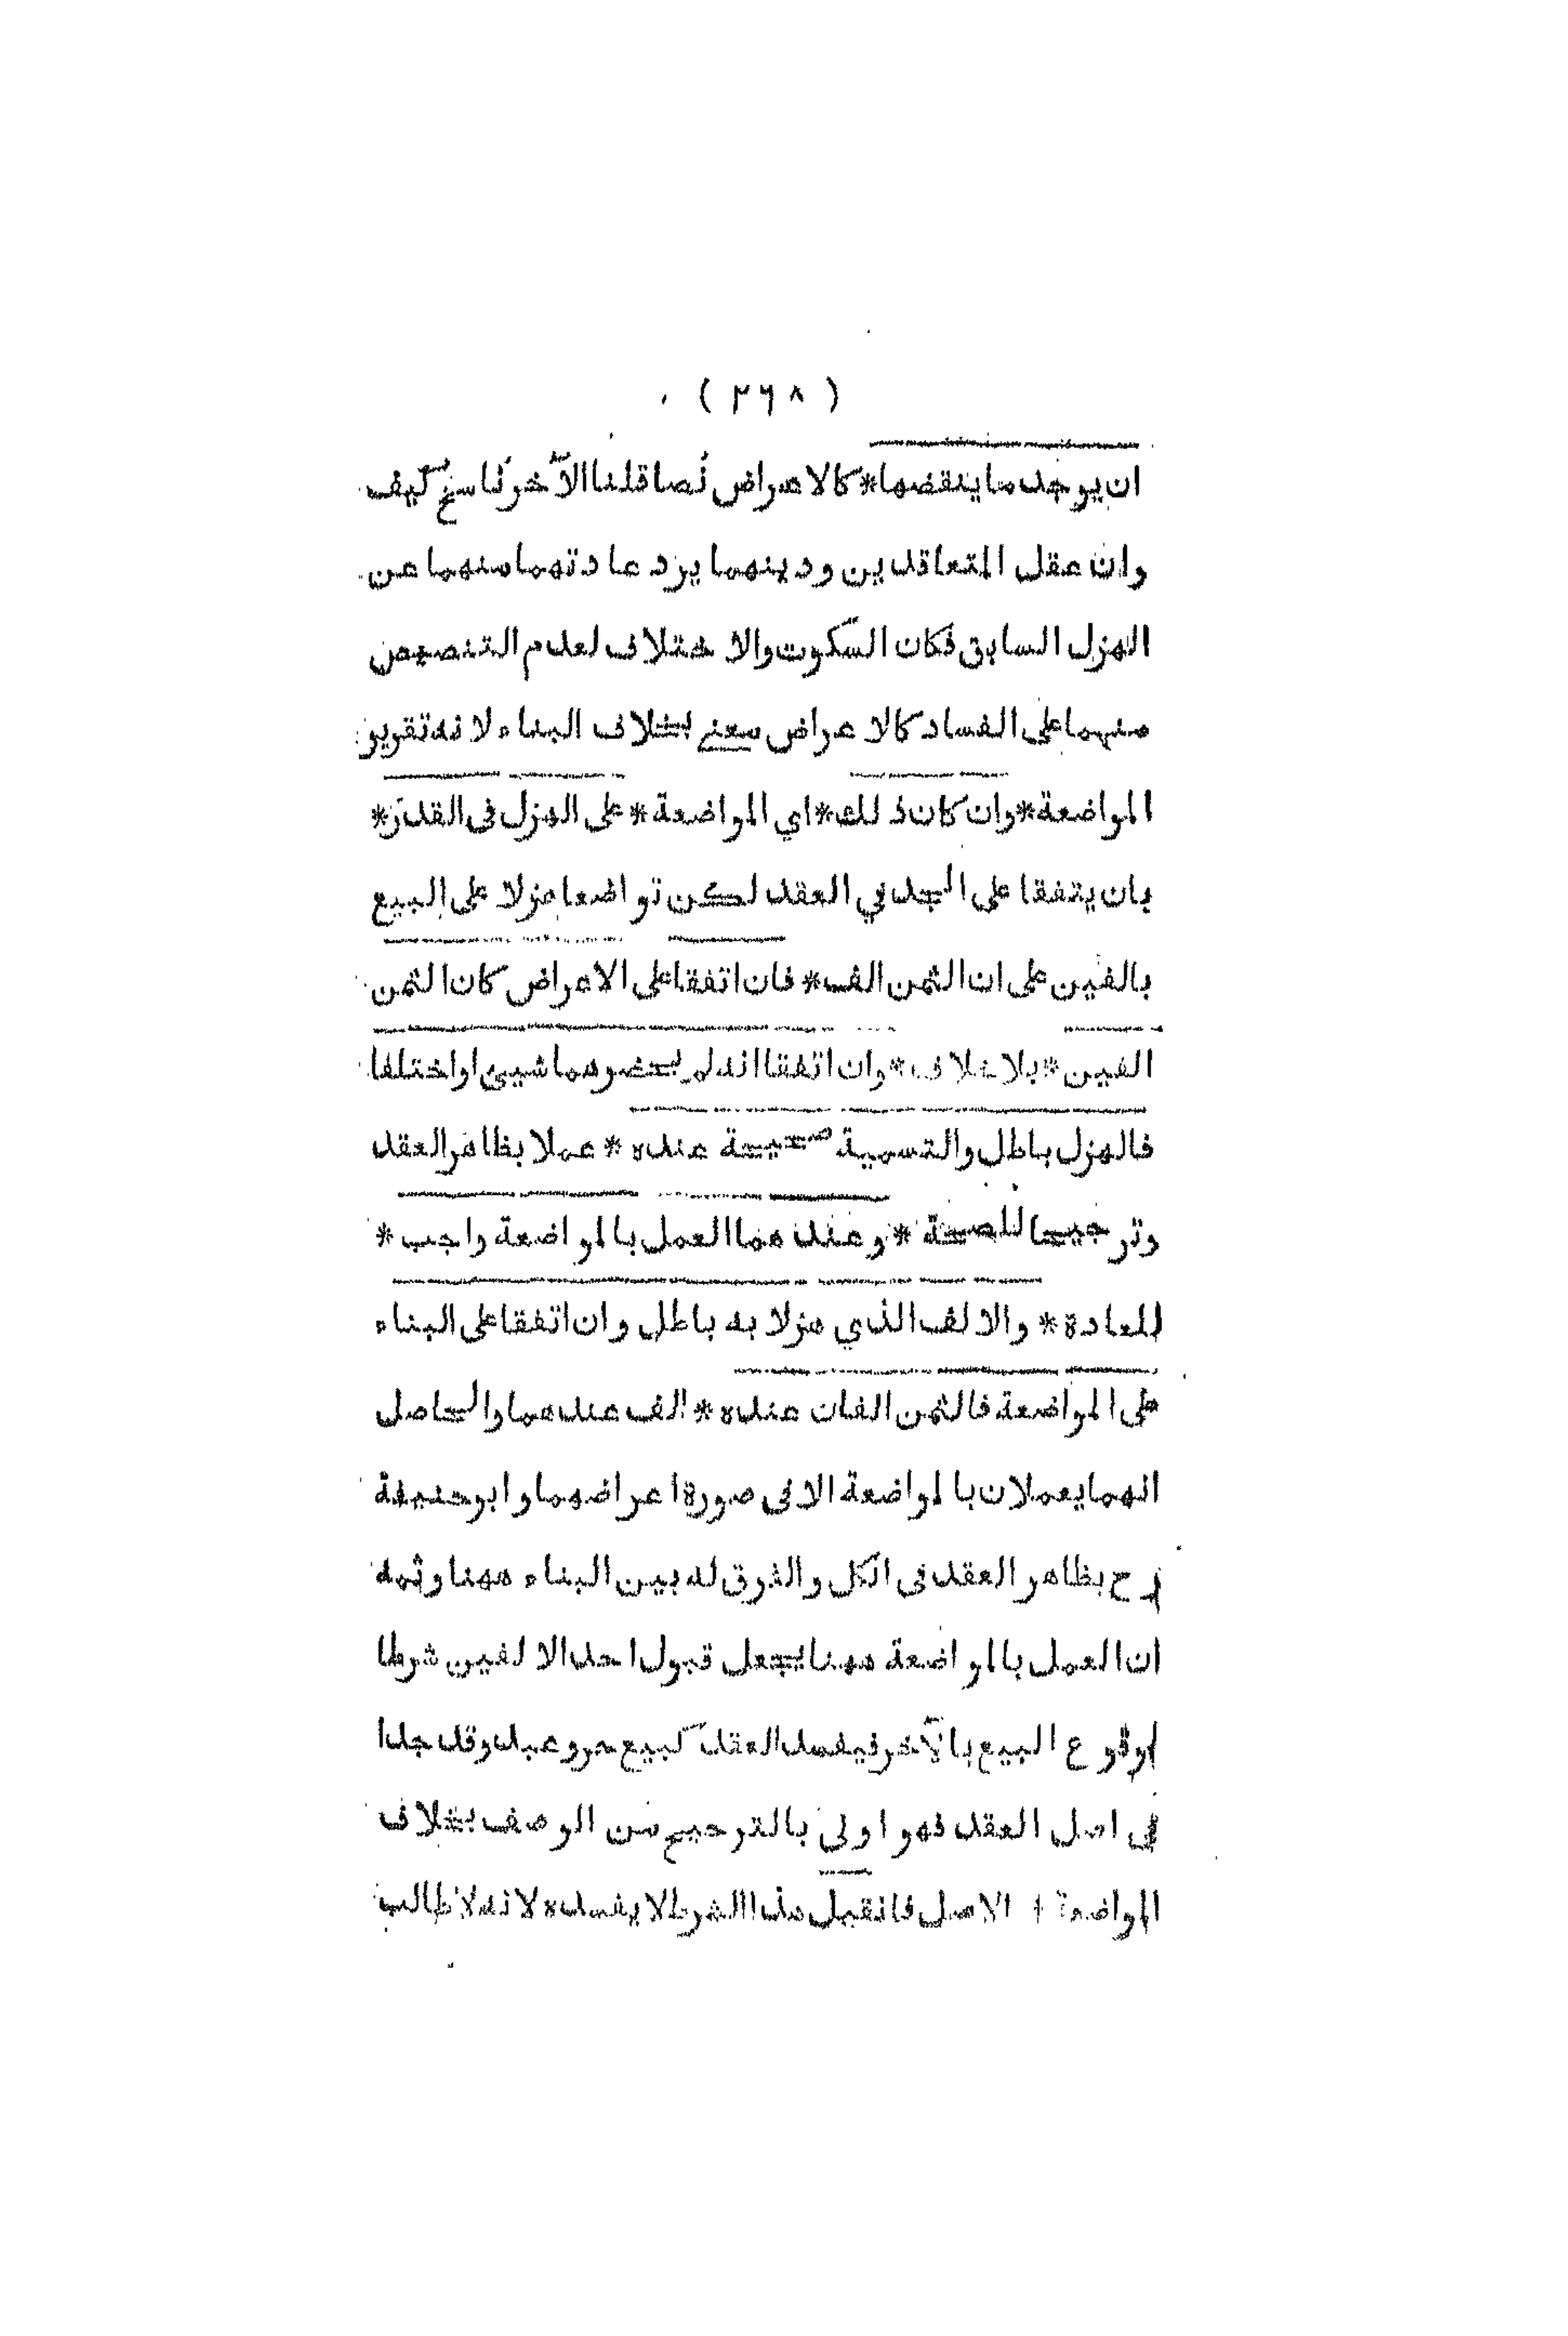 ( ٢٦٨ )
ان يوجد ما ينقضها * كالاعراض نصا قلنا الآخر ناسخ كيف
وان عقل المتعاقدين ودينهما يرد عادتهما منهما عن
الهزل السابق فكان السكوت والاختلاف لعدم التنصيص
منهما على الفساد كالاعراض معنى بخلاف البناء لانه تقرير
المواضعة * وان كان ذلك * اي المواضعة * على الهزل في القدر *
بان يتفقا على الجد في العقد لكن تواضعا هزلا على البيع
بالفين على ان الثمن الف * فان اتفقا على الاعراض كان الثمن
الفين * بلا خلاف * وان اتفقا انه لم يحضرهما شيئ او اختلفا
فالهزل باطل والتسمية صحيحة عنده * عملا بظاهر العقد
وترجيحا للصحة * وعندهما العمل بالمواضعة واجب *
للعادة * والالف الذي هزلا به باطل وان اتفقا على البناء
على المواضعة فالثمن الفان عنده * الف عندهما والحاصل
انهما يعملان بالمواضعة الا في صورة اعراضهما وابو حنيفة
رح بظاهر العقد في الكل والفرق له بين البناء ههنا وثمه
ان العمل بالمواضعة ههنا يجعل قبول احد الالفين شرطا
لوقوع البيع بالآخر فيفسد العقد كبيع حر وعبد وقد جدا
في اصل العقد فهو اولى بالترجيح من الوصف بخلاف
المواضعة الاصل فان قبل هذا الشرط لا يفسده لانه لا طالب